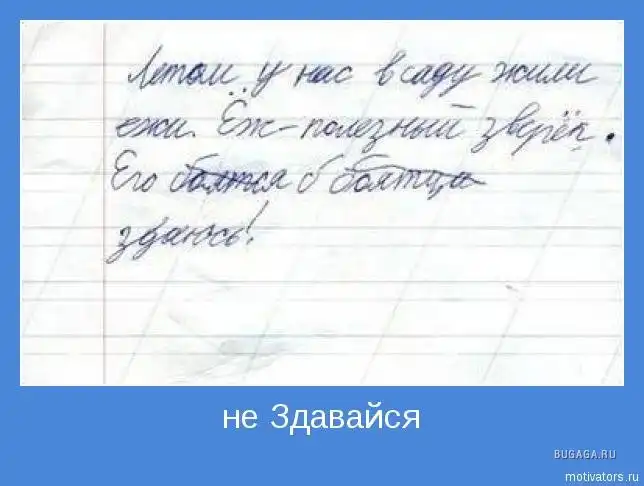 Летом у нас в саду жили
ежи. Ёж - полезный зверёк.
Его боятся б боятца
здаюсь!
не Здавайся
BUGAGA.RU
motivators.ru